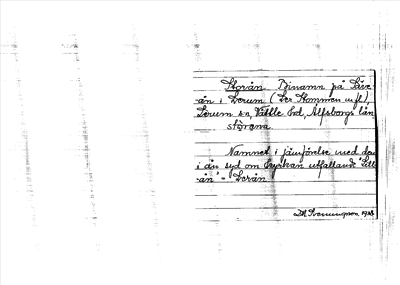 Storån Binamn på Säve-
ån i Lerum (
Lerum sn, Vättle hd, Älfsborgs län
störøna
Namnet i jämförelse med den
i ån syd om kyrkan utfallande "Lill-
ån" = Lerån
Svenungsson 1928